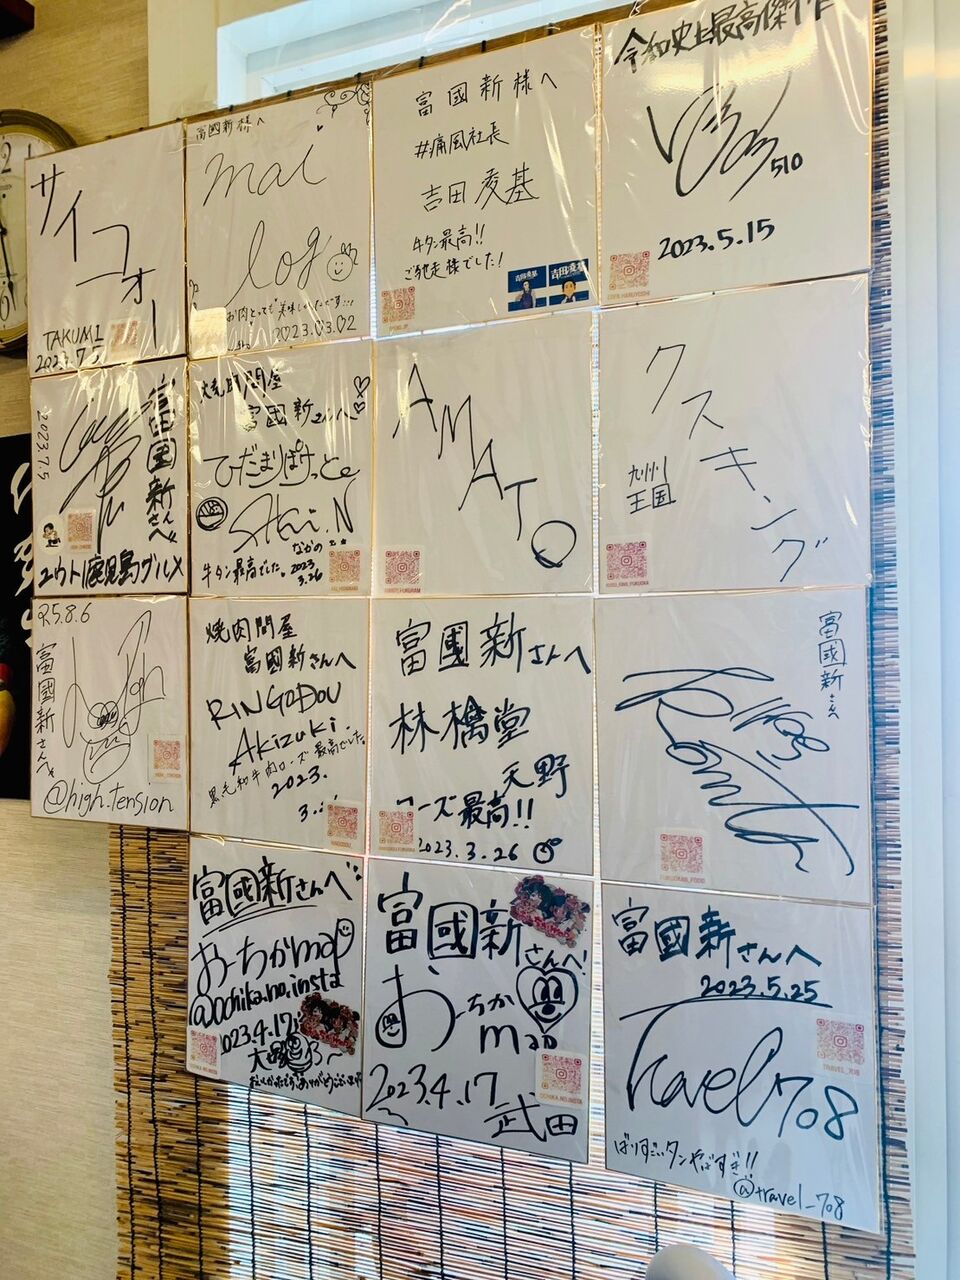 サイコォー
TAKUMI
富國新様へ
mai
log
お肉とっても美味しかったです
2023.03.02
富國新様へ
#痛風社長
吉田凌基
牛タン最高!!
ご馳走様でした!
吉田凌基
吉田凌基
令和史上最高傑作
510
2023.5.15
2023.7.5
富国新さんへ
ユウト|鹿児島グルメ
焼肉問屋
富國新さんへ
ひだまりぽけっと
なかの
牛タン最高でした。
2023
3.26
AMATO
クスキング
九州
王国
R5.8.6
富國新さんへ
@high.tension
焼肉問屋
富國新さんへ
RINGODOU
Akizuki
黒毛和牛肉ロース最高でした。
2023.
3.
富國新さんへ
林檎堂
天野
ロース最高!!
2023.3.26
富國新さんへ
富國新さんへ
おーちかmap
@ochika.no.insta
2023.4.17
富國新さんへ!
おーちか
map
2023.4.17
武田
富國新さんへ
2023.5.25
Travel708
TRAVEL_708
ばりすごいタンやばすぎ!!
@travel_708